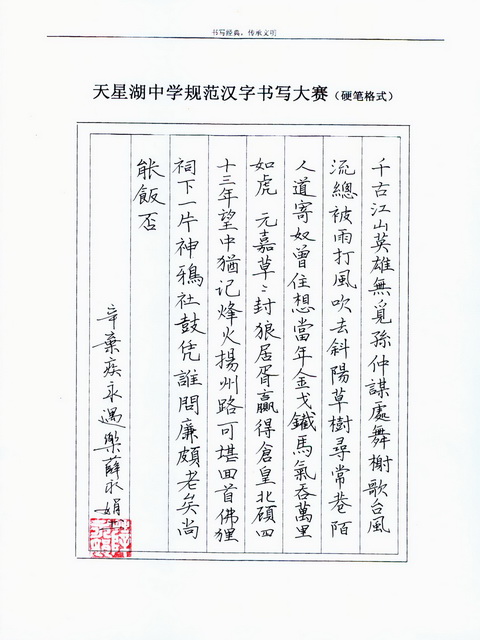 书写经典，传承文明
天星湖中学规范汉字书写大赛（硬笔格式）
千古江山英雄無覓孫仲謀處舞榭歌台風
流總被雨打風吹去斜陽草樹尋常巷陌
人道寄奴曾住想當年金戈鐵馬氣吞萬里
如虎 元嘉草〻封狼居胥贏得倉皇北顧四
十三年望中猶记烽火揚州路可堪回首佛狸
祠下一片神鴉社鼓凭誰問廉頗老矣尚
能飯否
辛棄疾永遇樂薛永娟